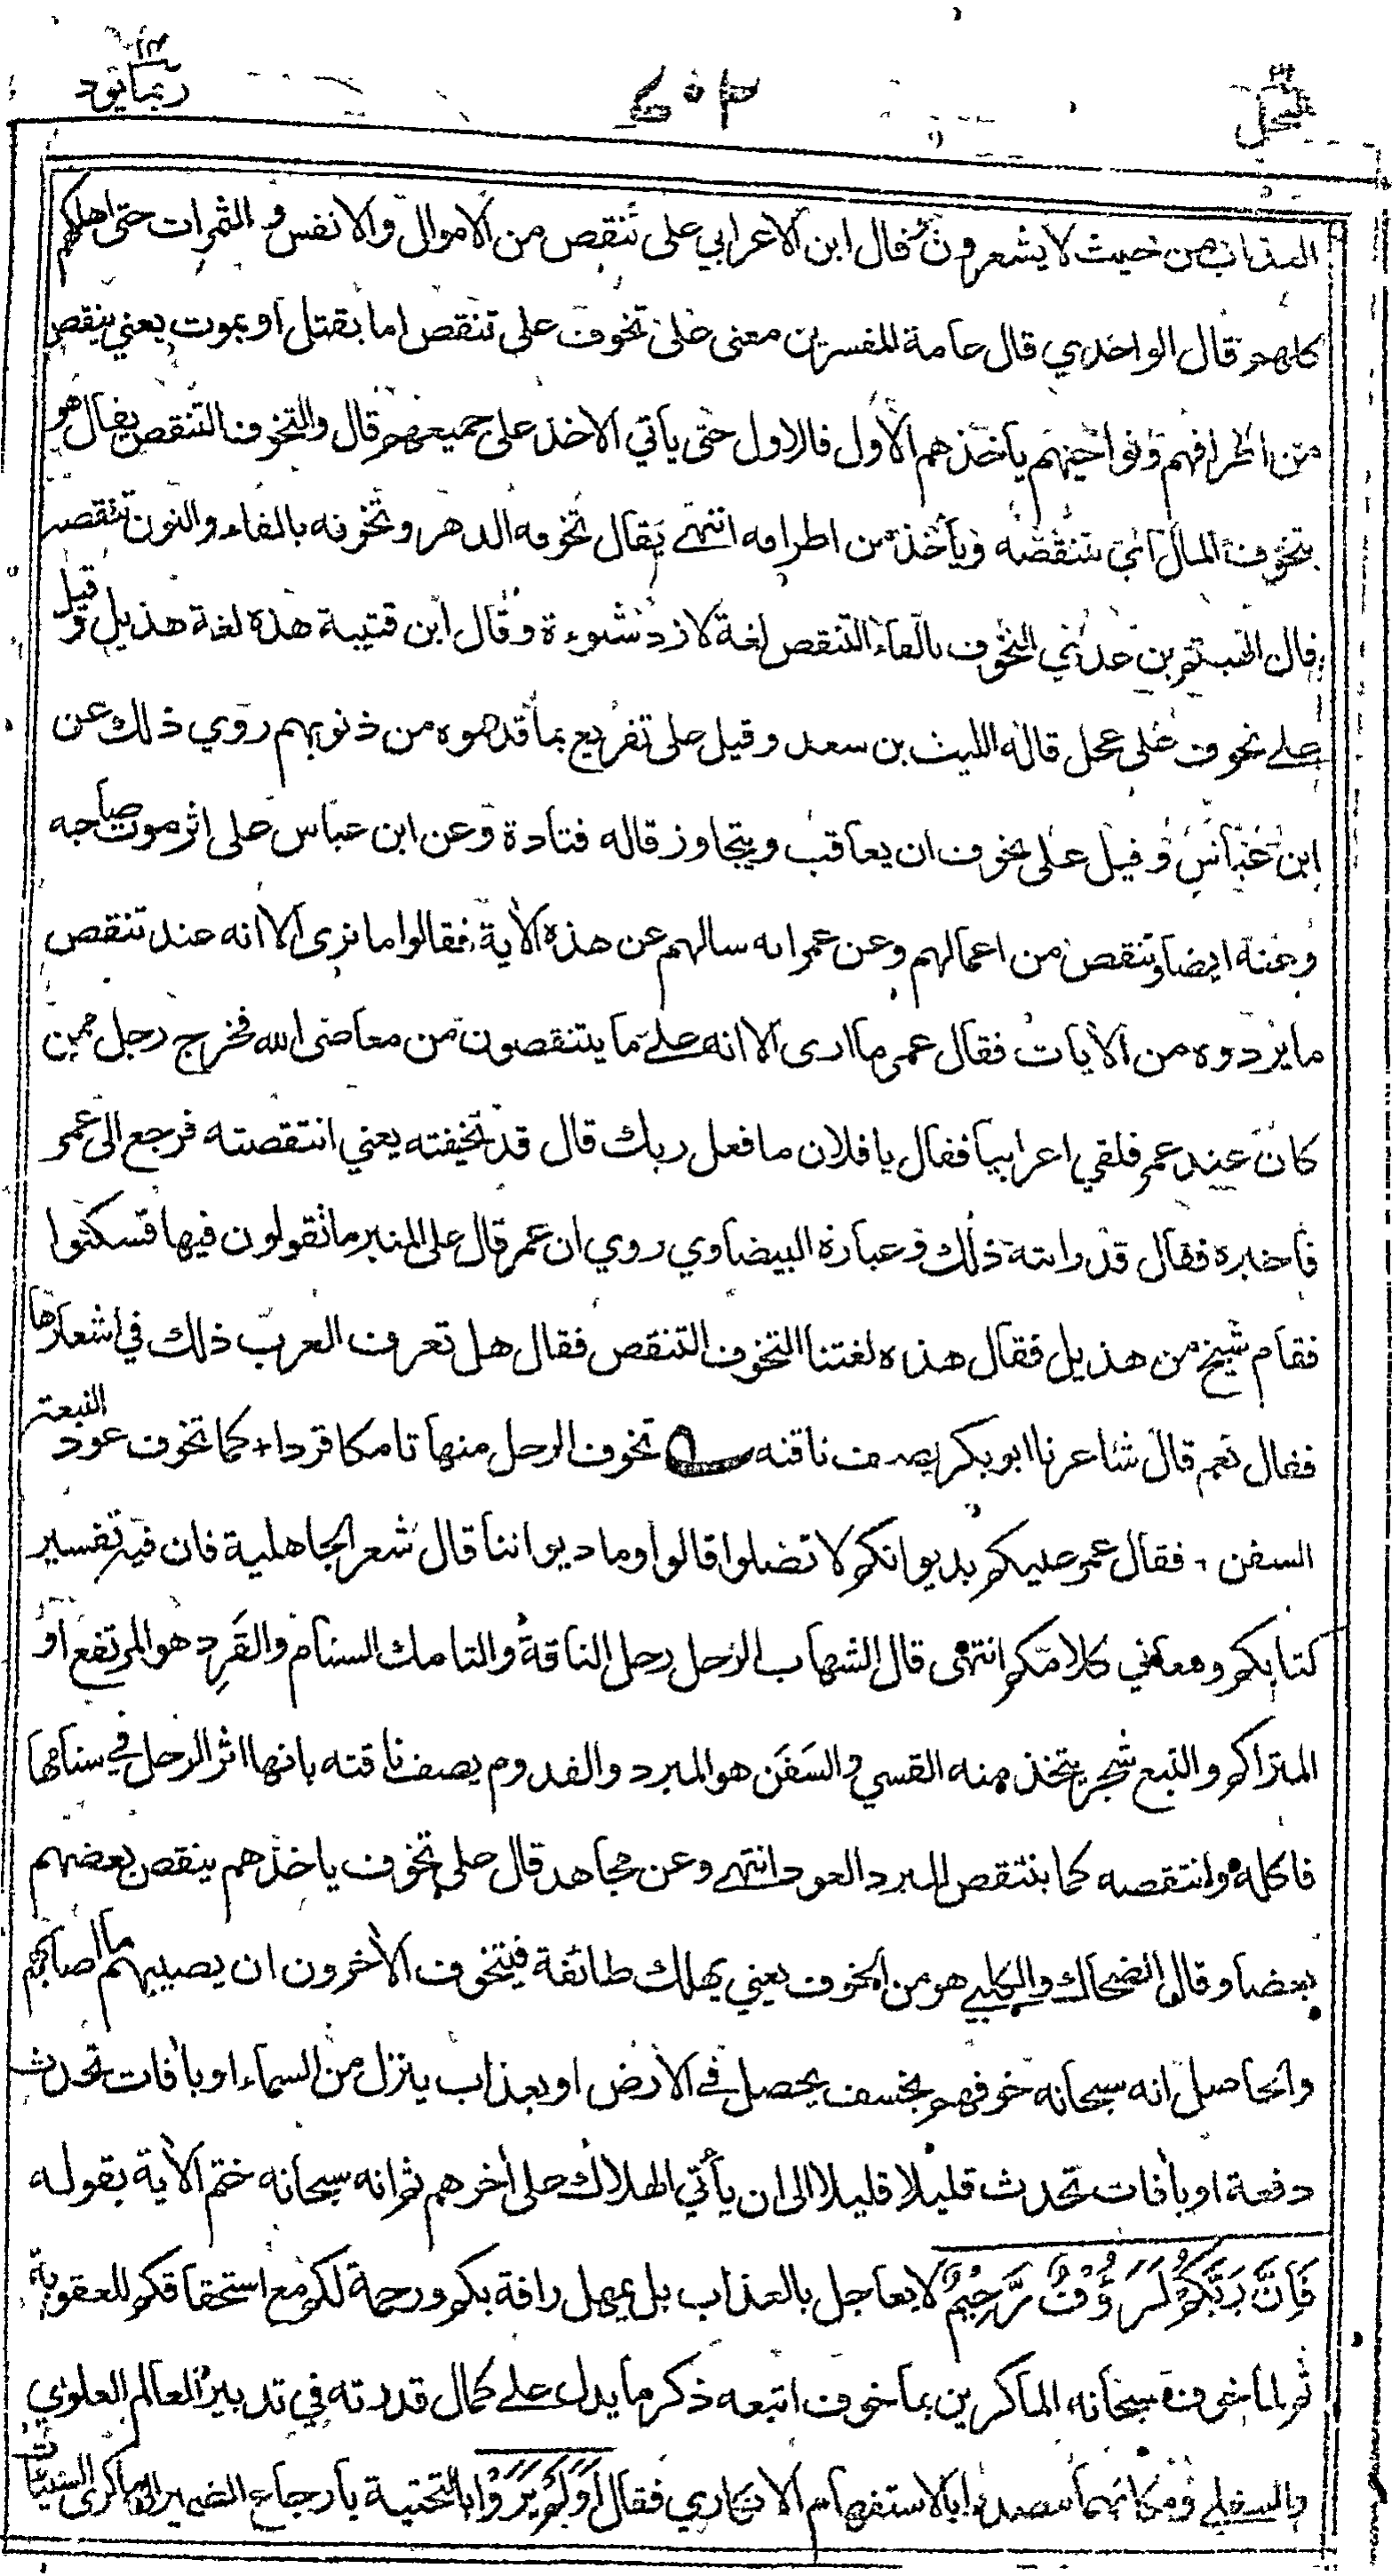 ربما ١٤
٤٠٢
النحل
العذاب من حيث لا يشعرون قال ابن الاعرابي على تنقص من الاموال والانفس والثمرات حتى اهلكهم
كلهم قال الواحدي قال عامة المفسرين معنى على تخوف على تنقص اما بقتل او بموت يعني ينقص
من اطرافهم ونواحيهم يأخذهم الاول فالاول حتى يأتي الاخذ على جميعهم قال والتخوف التنقص يقال هو
يتخوف المال اي يتنقصه ويأخذ من اطرافه انتهى يقال تخوفه الدهر وتخونه بالفاء والنون تنقصه
قال الهيثم بن عدي التخوف بالفاء التنقص لغة لازد شنوءة وقال ابن قتيبة هذه لغة هذيل وقيل
على تخوف على عجل قاله الليث بن سعد وقيل على تقريع بما قدموه من ذنوبهم روي ذلك عن
ابن عباس وقيل على تخوف ان يعاقب ويتجاوز قاله قتادة وعن ابن عباس على اثر موت صاحبه
وعنه ايضا وتنقص من اعمالهم وعن عمر انه سالهم عن هذه الأية فقالوا ما نرى الا انه عند تنقص
ما يردوه من الأيات فقال عمر ما ارى الا انه على ما يتنقصون من معاصى الله فخرج رجل ممن
كان عند عمر فلقي اعرابيا فقال يا فلان ما فعل ربك قال قد تخيفته يعني انتقصته فرجع الى عمر
فأخبره فقال قد رايته ذلك وعبارة البيضاوي روي ان عمر قال على المنبر ما تقولون فيها فسكتوا
فقام شيخ من هذيل فقال هذه لغتنا التخوف التنقص فقال هل تعرف العرب ذلك في اشعارها
فقال نعم قال شاعرنا ابو بكر يصف ناقته تخوف الرحل منها تامكا قردا + كما تخوف عود النبعة
السفن ، فقال عمر عليكم بديوانكم لا تضلوا قالوا وما ديواننا قال شعر الجاهلية فان فيه تفسير
كتابكم ومعاني كلامكم انتهى قال الشهاب الرحل رحل الناقة والتامك السنام والقَرِد هو المرتفع او
المتراكم والنبع شجر يتخذ منه القسي والسَفَن هو المبرد والقدوم يصف ناقته بانها اثر الرحل في سنامها
فاكله وانتقصه كما ينتقص المبرد العود انتهى وعن مجاهد قال على تخوف ياخذهم ينقص بعضهم
بعضا وقال الضحاك والكلبي هو من الخوف يعني يهلك طائفة فيتخوف الأخرون ان يصيبهم ما اصابهم
والحاصل انه سبحانه خوفهم بخسف يحصل في الارض او بعذاب ينزل من السماء او بأفات تحدث
دفعة او بأفات تحدث قليلا قليلا الى ان يأتي الهلاك على أخرهم ثم انه سبحانه ختم الأية بقوله
فَاِنَّ رَبَّكُمْ لَرَءُوْفٌ رَّحِيْمٌ لا يعاجل بالعذاب بل يمهل رافة بكم ورحمة لكم مع استحقاقكم للعقوبة
ثم لما خوف سبحانه الماكرين بما خوف اتبعه ذكر ما يدل على كمال قدرته في تدبير العالم العلوي
والسفلي ومكانهما مصدرا بالاستفهام الانكاري فقال اَوَلَمْ يَرَوْا بالتحتية بأرجاع الضمير الى ماكرى السيئات